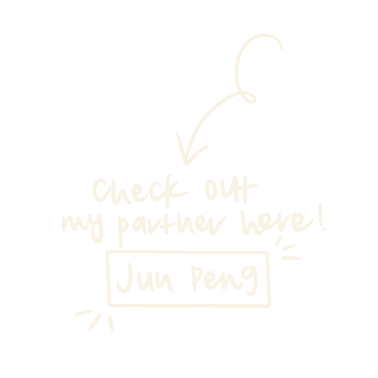 Check out
my partner here!
Jun Peng